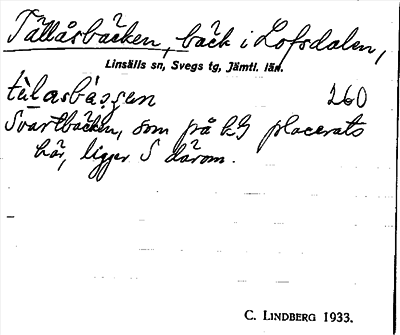 Tällåsbäcken, bäck i Lofsdalen,
Linsälls sn, Svegs tg, Jämtl. län.
tèlasbàʒʒen 260
Svartbäcken, som på kg placerats
här, ligger S därom.
C. LINDBERG 1933.